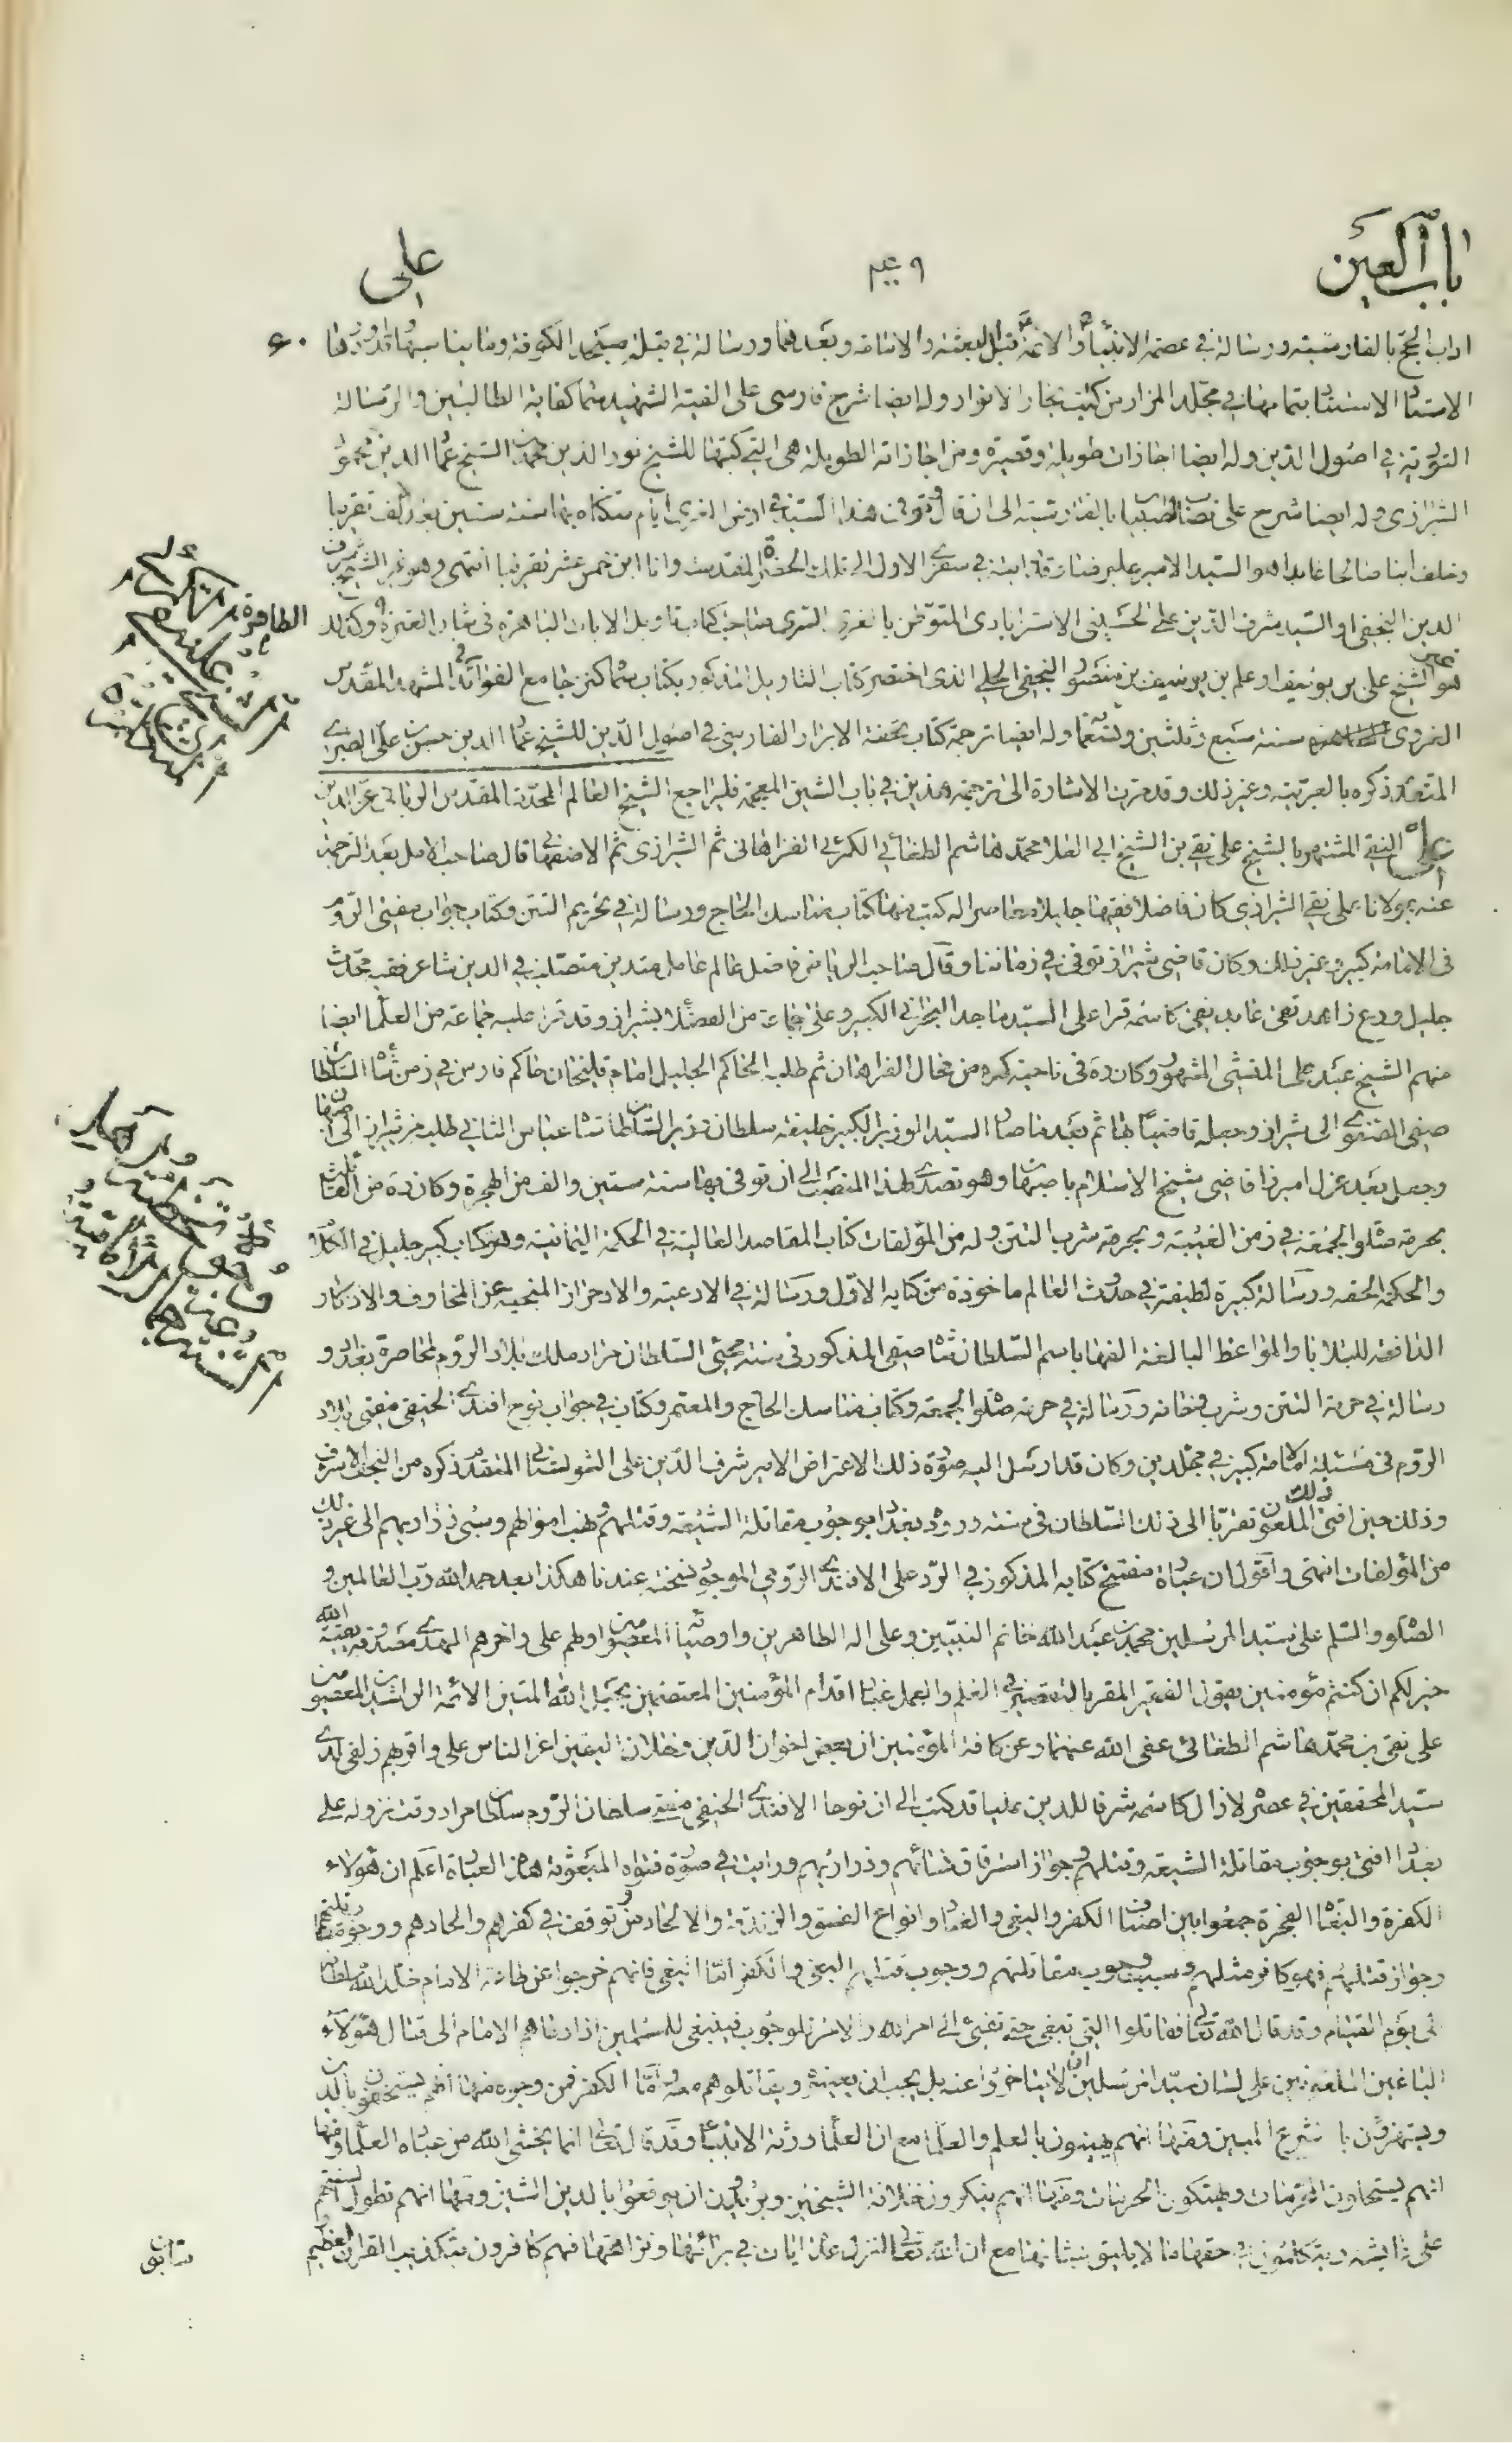 باب العين
۴۰۹
على
اداب الحج بالفارسية ورسالة في عصمة الانبياء والائمة قبل البعثة والامامة وبعدهما ورسالة في قبلة مسجد الكوفة وما يناسبها قد اوردها
الاستاد الاستناد بتمامها في مجلد المزار من كتب بحار الانوار وله ايضا شرح فارسى على الفية الشهيد سماه كفاية الطالبين والرسالة
في اصول الدين وله ايضا اجازات طويلة وقصيرة ومن اجازاته الطويلة هى التي كتبها للشيخ نور الدين محمد بن الشيخ عماد الدين محمود
الشيرازى وله ايضا شرح على نصاب الصبيان بالفارسية الى ان قال وتوفى هذا السيد في ارض الغرى ايام سكناه بها سنة ستين بعد الف تقريبا
وخلف ابنا صالحا عابدا هو السيد الامير عليرضا رايته في سفرى الاول الى تلك الحضرة المقدسة وانا ابن خمس عشر تقريبا انتهى وهو غير الشيخ شرف
الدين النجفى او السيد شرف الدين على الحسينى الاسترابادى المتوطن بالغرى السرى صاحب كتاب تاويل الايات الباهرة في شان العترة الطاهرة وكذلك
هو غير الشيخ على بن يوسف او علم بن يوسف بن منصور النجفى الحلى الذى اختصر كتاب التاويل المذكور بكتاب سماه كنز جامع الفوائد في المشهد المقدس
الغروى سنة سبع وثلثين وتسعمائة وله ايضا ترجمة كتاب تحفة الابرار الفارسى في اصول الدين للشيخ عماد الدين حسن بن على الطبرى
المتقدم ذكره بالعربية وغير ذلك وقد مرت الاشارة الى ترجمة هذين في باب الشين المعجمة فليراجع الشيخ العالم المحدث المقدس الربانى عز الدين
على النقى المشتهر بالشيخ على نقى بن الشيخ ابى العلاء محمد هاشم الطغائى الكمرئى الفراهانى ثم الشيرازى ثم الاصفهانى قال صاحب الامل بعد الترجمة
عنه بمولانا على نقى الشيرازى كان فاضلا فقيها جليلا معاصرا له كتب منها كتاب مناسك الحاج ورسالة في تحريم التتن وكتاب جواب مفتى الروم
في الامامة كبير وغير ذلك وكان قاضى شيراز توفى في زماننا وقال صاحب الرياض فاضل عالم عامل متدين متصلب في الدين شاعر فقيه محدث
جليل ورع زاهد تقى عابد نقى كاسمه قرا على السيد ماجد البحرانى الكبير وعلى جماعة من الفضلاء بشيراز وقد قرا عليه جماعة من العلما ايضا
منهم الشيخ عبد على المنشى المشهور وكان ره في ناحية كمره من محال الفراهان ثم طلبه الحاكم الجليل امام قليخان حاكم فارس في زمن السلطان شاه
صفى الصفوى الى شيراز وجعله قاضيا بها ثم بعد ما صار السيد الوزير الكبير خليفة سلطان وزير السلطان شاه عباس الثانى طلبه من شيراز الى اصبهان
وجعل بعد عزل اميرزا قاضى شيخ الاسلام باصبهان وهو تصدى لهذا المنصب الى ان توفى بها سنة ستين والف من الهجرة وكان ره من القائلين
بحرمة صلوة الجمعة في زمن الغيبة وبحرمة شرب التتن وله من المؤلفات كتاب المقاصد العالية في الحكمة اليمانية وهو كتاب كبير جليل في الكلام
والحكمة الحقه ورسالة كبيرة لطيفة في حدوث العالم ماخوذة من كتابه الاول ورسالة في الادعية والاحراز المنجية عن المخاوف والاذكار
الدافعة للبلايا والمواعظ البالغة الفها باسم السلطان شاه صفى المذكور في سنة مجئى السلطان مراد ملك بلاد الروم لمحاصرة بغداد و
رسالة في حرمة التتن وشرب دخانه ورسالة في حرمة صلوة الجمعة وكتاب مناسك الحاج والمعتمر وكتاب في جواب نوح افندى الحنفى مفتى بلاد
الروم في مسئلة الامامة كبير في مجلدين وكان قد ارسل اليه صورة ذلك الاعتراض الامير شرف الدين على الشولستانى المتقدم ذكره من النجف الاشرف
وذلك حين افتى ذلك الملعون تقربا الى ذلك السلطان في سنة ورود بغداد بوجوب مقاتلة الشيعة وقتلهم ونهب اموالهم وسبى ذراريهم الى غير ذلك
من المؤلفات انتهى واقول ان عبارة مفتتح كتابه المذكور في الرد على الافندى الرومى الموجود نسخته عندنا هكذا بعد حمد الله رب العالمين و
الصلوة والسلم على سيد المرسلين محمد بن عبد الله خاتم النبيين وعلى اله الطاهرين واوصيائه المعصومين اولهم على واخرهم المهدى مصدوقة بقية الله
خير لكم ان كنتم مؤمنين يقول الفقير المقر بالتقصير في العلم والعمل غبار اقدام المؤمنين المعتصمين بحبل الله المتين الائمة الراشدين المعصومين
على نقى بن محمد هاشم الطغائى عفى الله عنهما وعن كافة المؤمنين ان بعض اخوان الدين وخلان اليقين اعز الناس على واقربهم زلفى لدى
سيد المحققين في عصره لازال كاسمه شرفا للدين عليا قد كتب الى ان نوحا الافندى الحنفى مفتى سلطان الروم سلطان مراد وقت نزوله على
بغداد افتى بوجوب مقاتلة الشيعة وقتلهم وجواز استرقاق نسائهم وذراريهم ورايت في صورة فتواه المبعوثة هذه العبارة اعلم ان هؤلاء
الكفرة والبغاة الفجرة جمعوا بين اصناف الكفر والبغى والعناد وانواع الفسق والزندقة والالحاد ومن توقف في كفرهم والحادهم ووجوب قتالهم
وجواز قتلهم فهو كافر مثلهم وسبب وجوب مقاتلتهم ووجوب قتلهم البغى والكفر اما البغى فانهم خرجوا عن طاعة الامام خلد الله سلطانه
الى يوم القيام وقد قال الله تعالى فقاتلوا التى تبغى حتى تفئ الى امر الله والامر للوجوب فينبغى للمسلمين اذا دعاهم الامام الى قتال هؤلاء
الباغين الملعونين على لسان سيد المرسلين ان لا يتاخروا عنه بل يجب ان يعينوه ويقاتلوهم معه واما الكفر فمن وجوه منها انهم يستخفون بالدين
ويستهزؤن بالشرع المبين ومنها انهم يهينون بالعلم والعلما مع ان العلما ورثة الانبياء وقد قال تعالى انما يخشى الله من عباده العلماء ومنها
انهم يستحلون المحرمات ويهتكون الحرمات ومنها انهم ينكرون خلافة الشيخين ويريدون ان يوقعوا بالدين الشين ومنها انهم تطول السنتهم
على عايشة ويتكلمون في حقها ما لا يليق بشانها مع ان الله تعالى انزل عدة ايات في براءتها ونزاهتها فهم كافرون بتكذيب القران العظيم